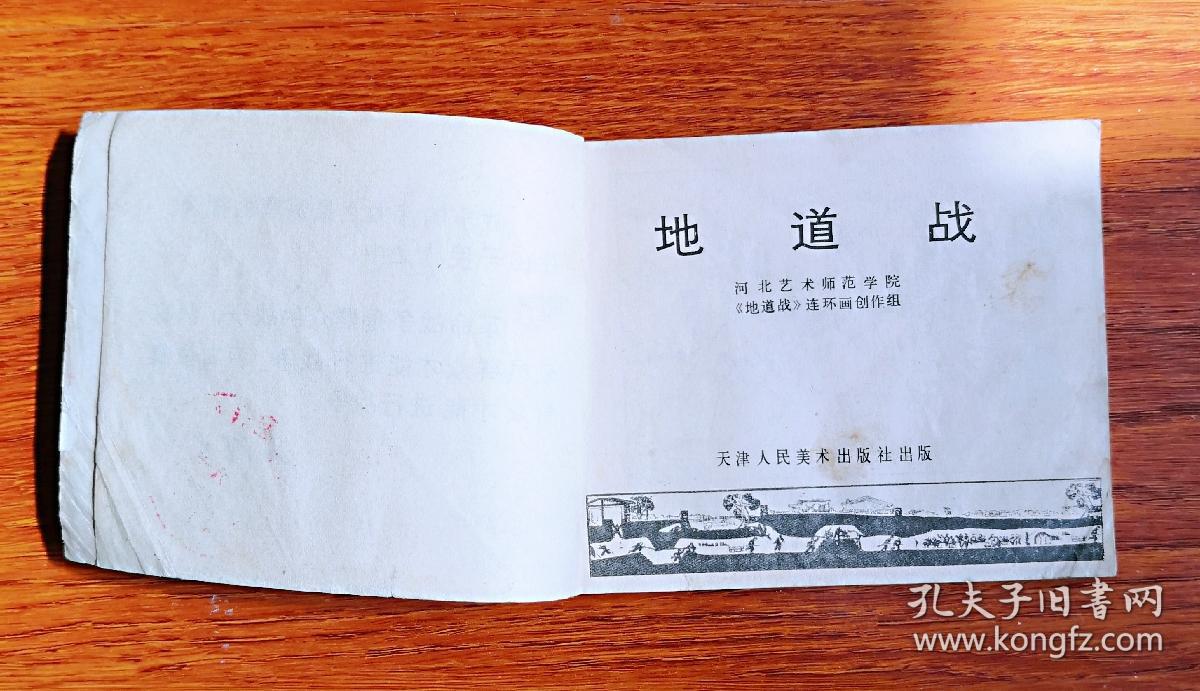 地道战
河北艺术师范学院
《地道战》连环画创作组
天津人民美术出版社出版
孔夫子旧書网
www.kongfz.com